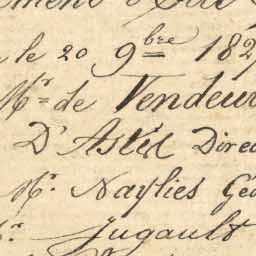 le 20 9bre 182
Mr de Vendeu
D'Astié Direc
Mr. Naylies Gé
r. Jugault